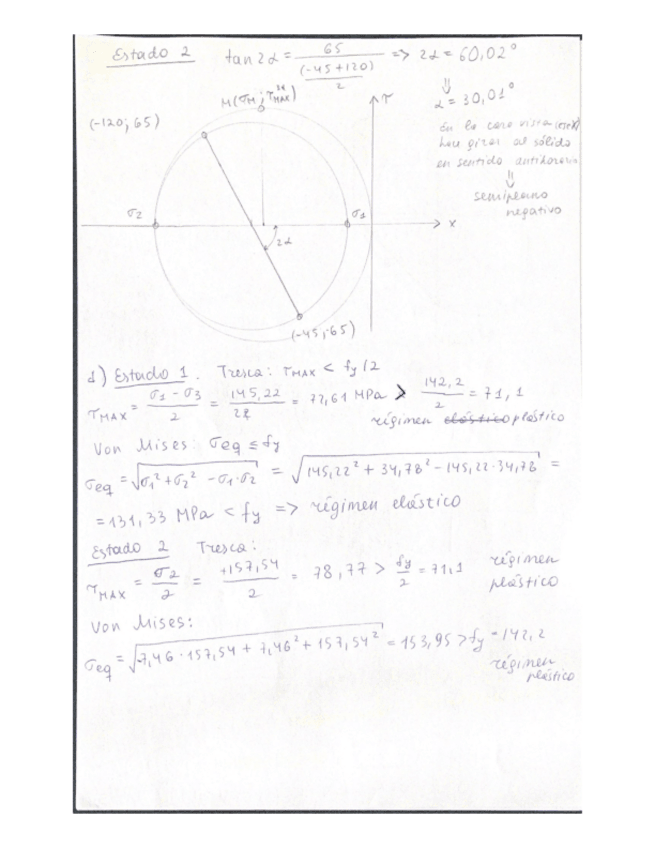 Estado 2 tan2α = 65 / ((-45+120)/2) => 2α = 60,02°
⇓
α = 30,01°
M(σM; τMAX)
τ
(-120; 65)
en la cara vista (eje X)
hay girar al sólido
en sentido antihorario
⇓
semiplano
negativo
σ2
σ1
x
2α
(-45;-65)
d) Estado 1. Tresca: τMAX < fy/2
τMAX = (σ1 - σ3)/2 = 145,22/2 = 72,61 MPa > 142,2/2 = 71,1
régimen elástico plástico
Von Mises: σeq ≤ fy
σeq = √(σ1² + σ2² - σ1·σ2) = √(145,22² + 34,78² - 145,22·34,78) =
= 131,33 MPa < fy => régimen elástico
Estado 2 Tresca:
τMAX = σ2/2 = +157,54/2 = 78,77 > fy/2 = 71,1 régimen
plástico
Von Mises:
σeq = √(-7,46·157,54 + 7,46² + 157,54²) = 153,95 > fy = 142,2
régimen
plástico